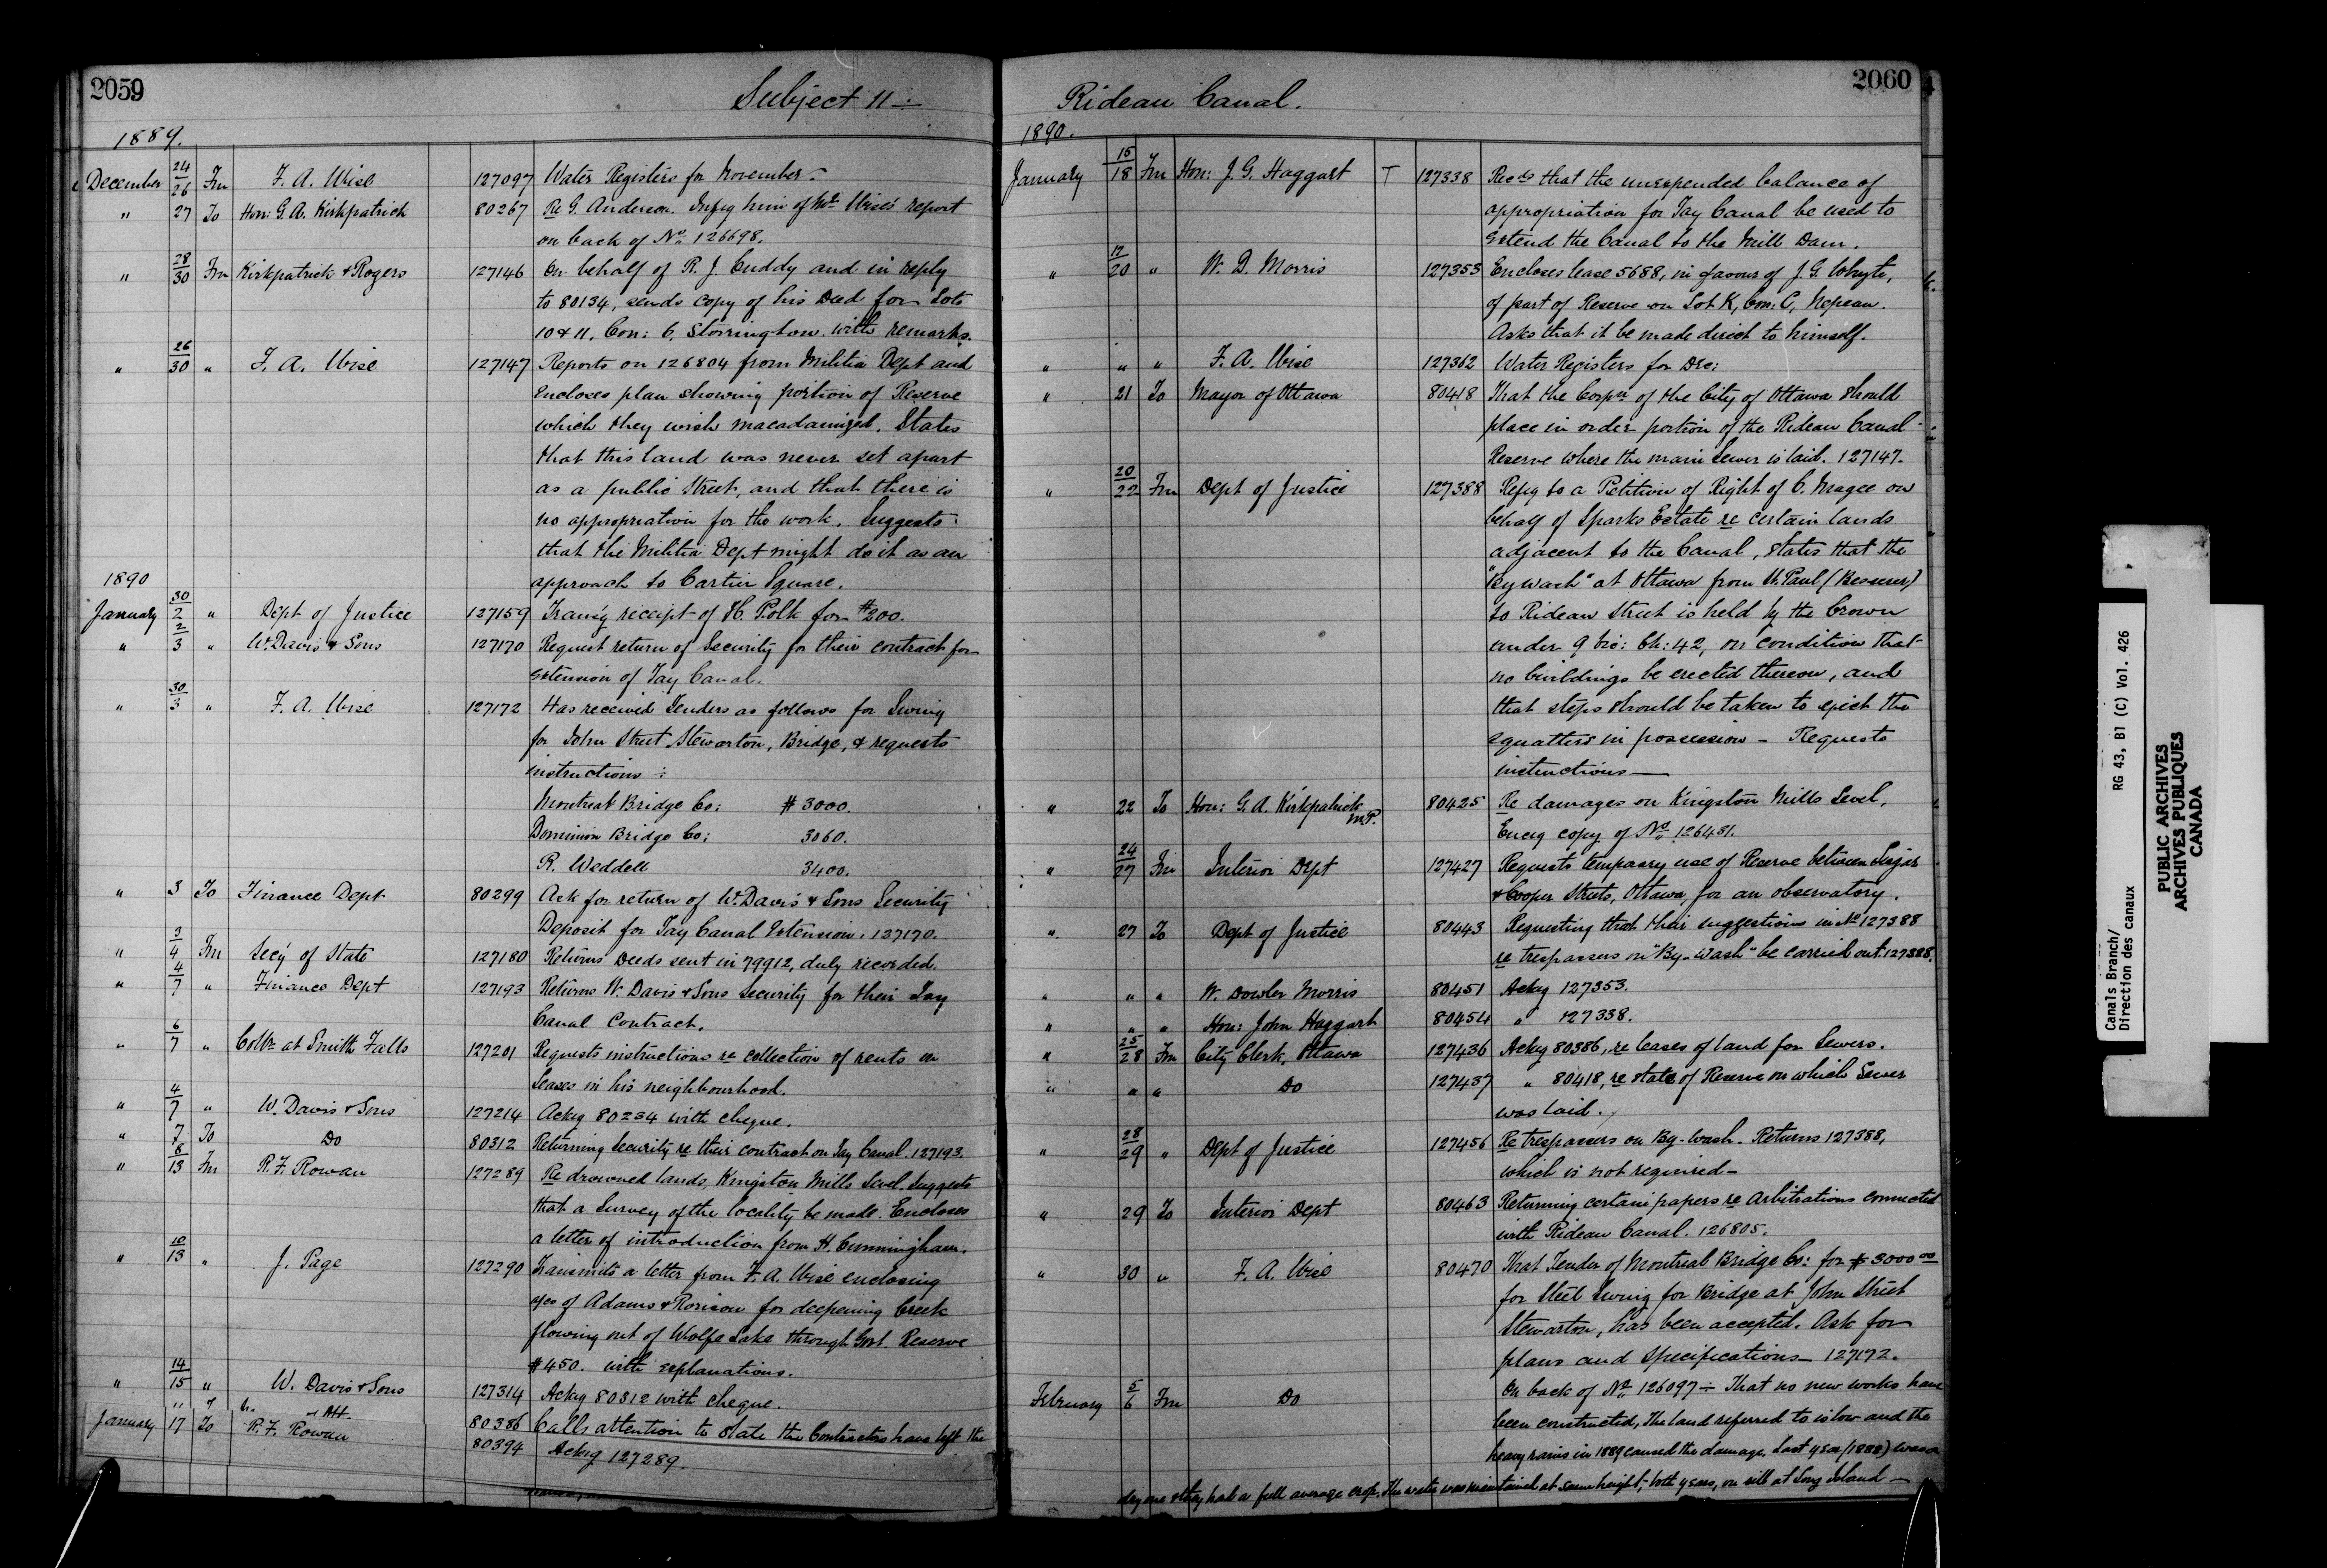 2059
Subject 11 :-
1889.
December 24/26 Fm F. A. Wise 127097 Water Registers for November -
" 27 To Hon: G. A. Kirkpatrick 80267 Re G. Anderson. Infg him of Mr. Wise's report
on back of No. 126698.
" 28/30 Fm Kirkpatrick & Rogers 127146 On behalf of R. J. Cuddy and in reply
to 80134, sends copy of his Deed for Lots
10 & 11, Con: 6, Storrington with remarks.
" 26/30 " F. A. Wise 127147 Reports on 126804 from Militia Dept and
encloses plan showing portion of Reserve
which they wish macadamized. States
that this land was never set apart
as a public Street, and that there is
no appropriation for the work. Suggests
that the Militia Dept might do it as an
approach to Cartier Square.
1890
January 30/2 " Dept of Justice 127159 Transg receipt of H. Polk for $200.
" 2/3 " W. Davis & Sons 127170 Request return of Security for their contract for
extension of Tay Canal.
" 30/3 " F. A. Wise 127172 Has received Tenders as follows for Swing
for John Street Stewarton, Bridge, & requests
instructions :
Montreal Bridge Co: $ 3000.
Dominion Bridge Co: 3060.
R. Weddell 3400.
" 3 To Finance Dept 80299 Ask for return of W. Davis & Sons Security
Deposit for Tay Canal Extension. 127170.
" 3/4 Fm Secy of State 127180 Returns Deeds sent in 79912, duly recorded.
" 4/7 " Finance Dept 127193 Returns W. Davis & Sons security for their Tay
Canal Contract.
" 6/7 " Collr at Smith Falls 127201 Requests instructions re collection of rents on
Leases in his neighbourhood.
" 4/7 " W. Davis & Sons 127214 Ackg 80234 with cheque.
" 7 To Do 80312 Returning Security re their contract on Tay Canal. 127193.
" 8/13 Fm R. F. Rowan 127289 Re drowned lands, Kingston Mills Level. Suggests
that a Survey of the locality be made. Encloses
a letter of introduction from H. Cunningham.
" 10/13 " J. Page 127290 Transmits a letter from F. A. Wise enclosing
a/cs of Adams & Rorison for deepening Creek
flowing out of Wolfe Lake through Govt. Reserve
$450. with explanations.
" 14/15 " W. Davis & Sons 127314 Ackg 80312 with cheque.
80386 Calls attention to state the Contractors have left the
January 17 To R. F. Rowan 80394 Ackg 127289.
2060
Rideau Canal.
1890.
January 15/18 Fm Hon: J. G. Haggart T 127338 Recds that the unexpended balance of
appropriation for Tay Canal be used to
extend the Canal to the Mill Dam.
" 17/20 " W. D. Morris 127353 Encloses lease 5688, in favour of J. G. Whyte,
of part of Reserve on Lot K, Con: C, Nepean.
Asks that it be made direct to himself.
" " " F. A. Wise 127362 Water Registers for Dec:
" 21 To Mayor of Ottawa 80418 That the Corpn of the City of Ottawa should
place in order portion of the Rideau Canal
Reserve where the main Sewer is laid. 127147.
" 20/22 Fm Dept of Justice 127388 Refg to a Petition of Right of C. Magee on
behalf of Sparks Estate re certain lands
adjacent to the Canal, states that the
"Bywash" at Ottawa from St. Paul (Besserer)
to Rideau Street is held by the Crown
under 9 Vic: Ch: 42, on condition that
no buildings be erected thereon, and
that steps should be taken to eject the
squatters in possession - Requests
instructions -
" 22 To Hon: G. A. Kirkpatrick M.P. 80425 Re damages on Kingston Mills Level,
Encg copy of No. 126451.
" 24/27 Fm Interior Dept 127427 Requests tempoary use of Reserve between Lisgar
& Cooper Streets, Ottawa, for an observatory.
" 27 To Dept of Justice 80443 Requesting that their suggestions in No 127388
re trespassers on "By-Wash" be carried out. 127388.
" " " W. Dowler Morris 80451 Ackg 127353.
" " " Hon: John Haggart 80454 " 127338.
" 25/28 Fm City Clerk, Ottawa 127436 Ackg 80386, re leases of land for Sewers.
" " " Do 127437 " 80418, re state of Reserve on which Sewer
was laid.
" 28/29 " Dept of Justice 127456 Re trespassers on By-wash. Returns 127388,
which is not required -
" 29 To Interior Dept 80463 Returning certain papers re Arbitrations connected
with Rideau Canal. 126805.
" 30 " F. A. Wise 80470 That Tender of Montreal Bridge Co: for $3000 00
for Steel Swing for Bridge at John Street
Stewarton, has been accepted. Ask for
plans and Specifications - 127172.
February 5/6 Fm Do On back of No. 126097 :- That no new works have
been constructed, The land referred to is low and the
heavy rains in 1889 caused the damage. Last year (1888) was a
dry one & they had a full average crop. The water was maintained at same height, both years, on sill at Long Island -
Canals Branch/ RG 43, B1 (C) Vol. 426
Direction des canaux
PUBLIC ARCHIVES
ARCHIVES PUBLIQUES
CANADA